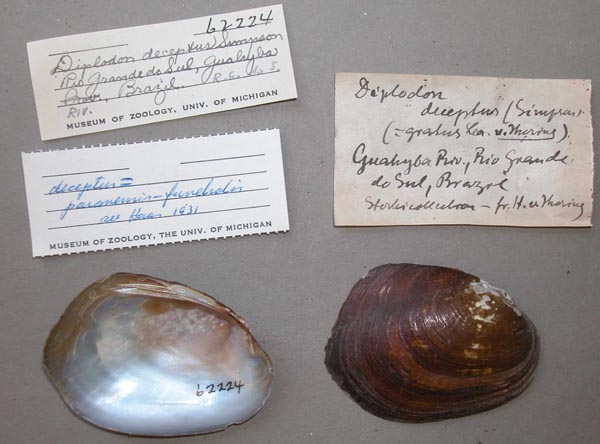 62224
Diplodon deceptus Simpson
Rio Grande do Sul, Guahyba
Prov., Brazil.
Riv.
MUSEUM OF ZOOLOGY, UNIV. OF MICHIGAN
deceptus =
paranensis-funebralis
see Haas 1931
MUSEUM OF ZOOLOGY, THE UNIV. OF MICHIGAN
Diplodon
deceptus (Simpson)
(=gratus Lea v. Ihering)
Guahyba Riv., Rio Grande
do Sul, Brazil
fr. H. v. Ihering
62224